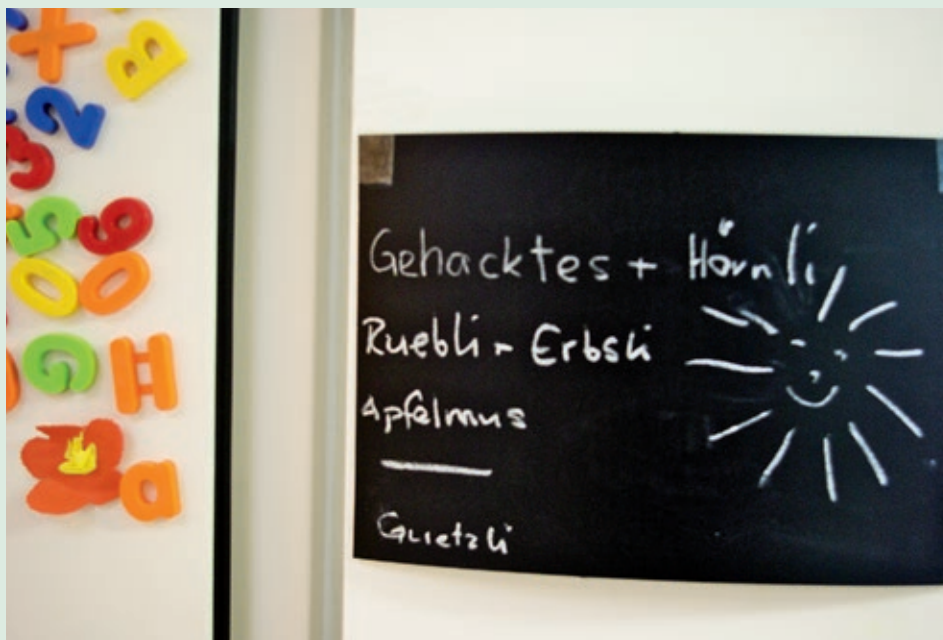 X B
2
3
5 9
0 0
G H
a
Gehacktes + Hörnli
Ruebli - Erbsli
Apfelmus
Guetzli